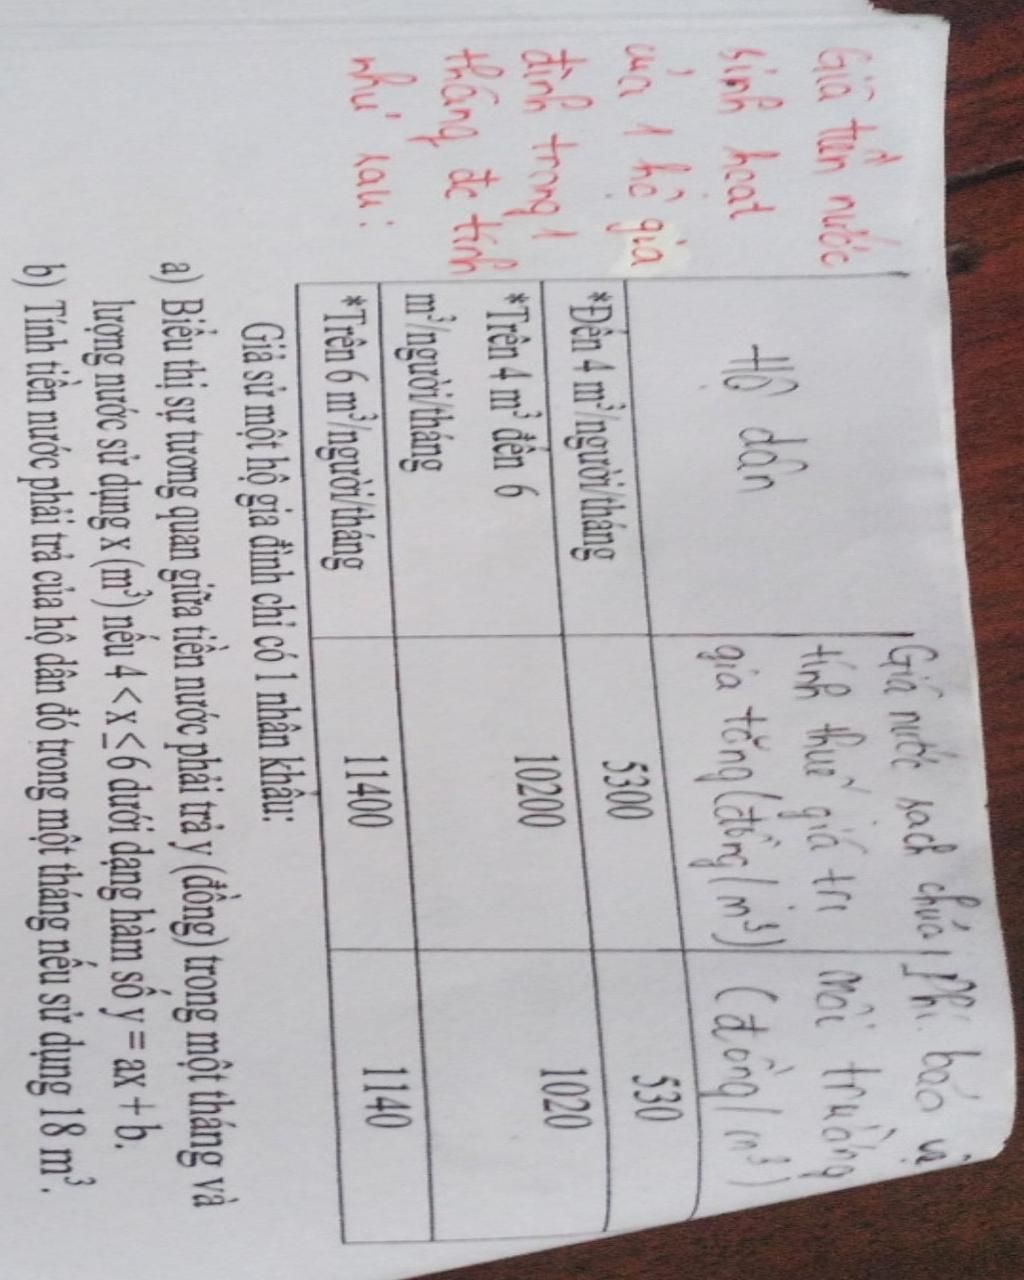 Giá tiền nước
sinh hoạt
của 1 hộ gia
đình trong 1
tháng đc tính
như sau:
Hộ dân
Giá nước sạch chưa
tính thuế giá trị
gia tăng (đồng/m³)
Phí bảo vệ
môi trường
(đồng/m³)
*Đến 4 m³/người/tháng
5300
530
*Trên 4 m³ đến 6
m³/người/tháng
10200
1020
*Trên 6 m³/người/tháng
11400
1140
Giả sử một hộ gia đình chỉ có 1 nhân khẩu:
a) Biểu thị sự tương quan giữa tiền nước phải trả y (đồng) trong một tháng và
lượng nước sử dụng x (m³) nếu 4 < x ≤ 6 dưới dạng hàm số y = ax + b.
b) Tính tiền nước phải trả của hộ dân đó trong một tháng nếu sử dụng 18 m³.